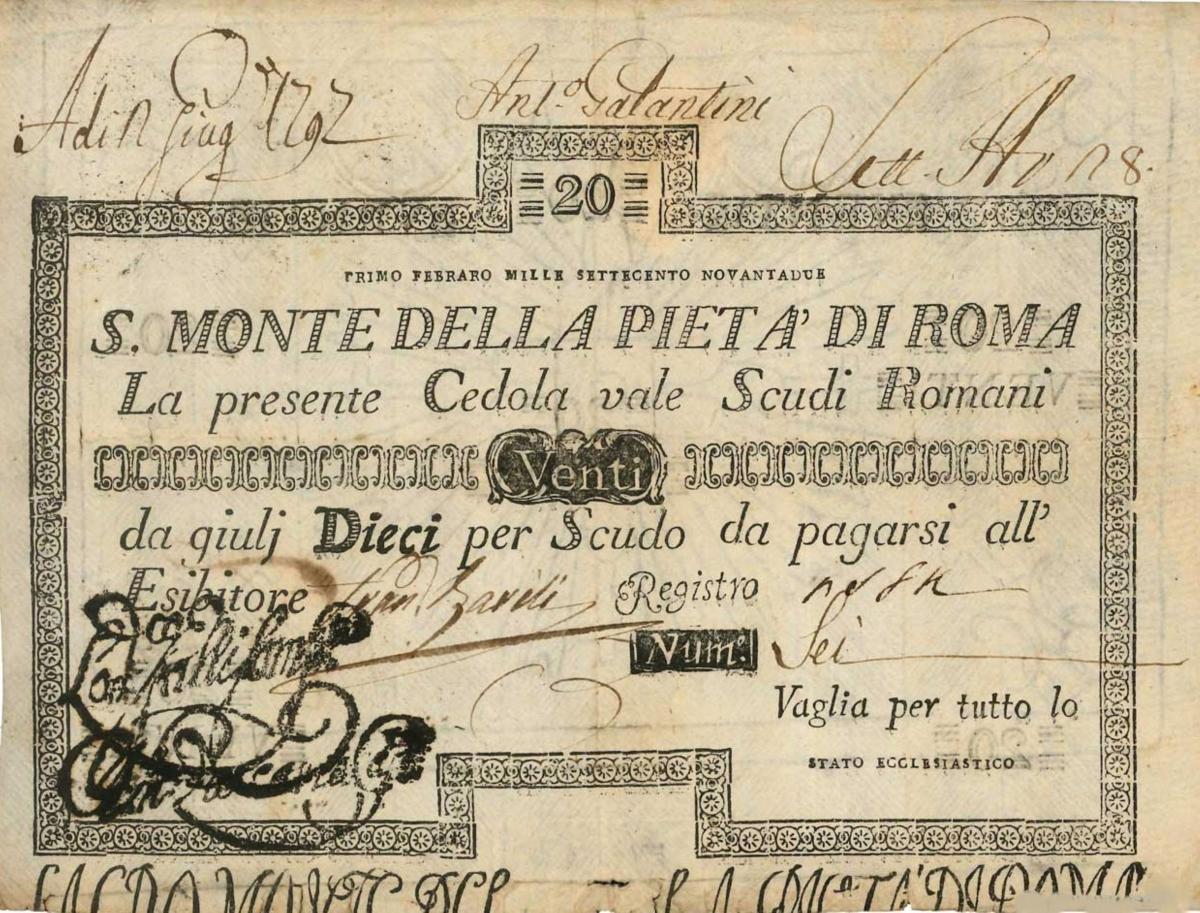 Adi 12 Giug 1792
Ant.o Galantini
Lett.
20
PRIMO FEBRARO MILLE SETTECENTO NOVANTADUE
S. MONTE DELLA PIETA' DI ROMA
La presente Cedola vale Scudi Romani
Venti
da giulj Dieci per Scudo da pagarsi all'
Esibitore Registro
Num.o Sei
Vaglia per tutto lo
STATO ECCLESIASTICO